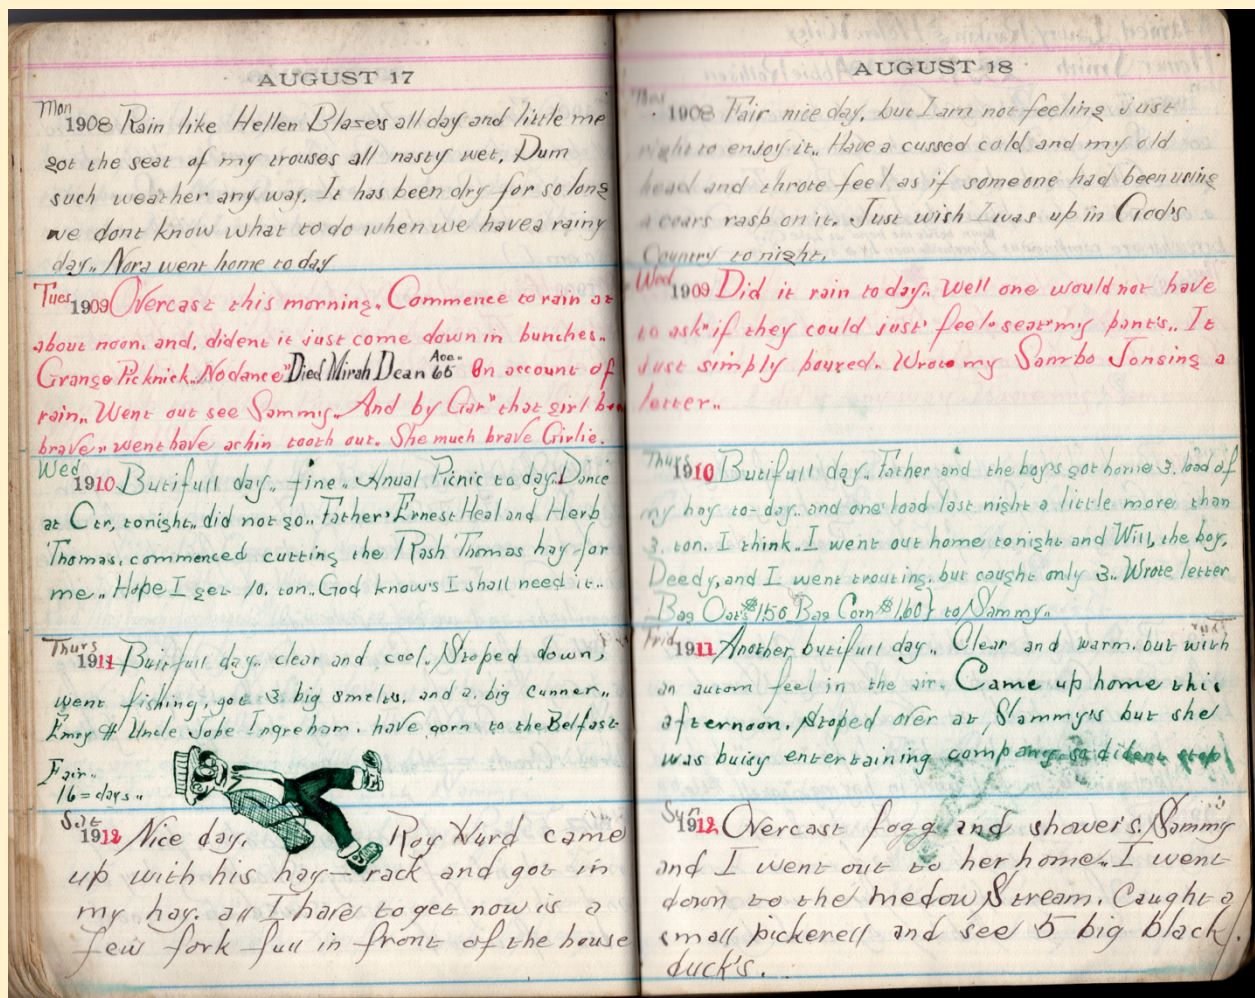 AUGUST 17
Mon
1908 Rain like Hellen Blazes all day and little me
got the seat of my trouses all nasty wet. Dum
such weather any way. It has been dry for so long
we dont know what to do when we have a rainy
day.. Nora went home to day
Tues
1909 Overcast this morning. Commence to rain at
about noon. and, dident it just come down in bunches..
Grange Picknick. No dance" Died Mirah Dean Age.. 65 On account of
rain.. Went out see Sammy. And by Gar" that girl
brave" went have achin tooth out. She much brave Girlie.
Wed
1910 Butifull day.. fine.. Anual Picnic to day. Dance
at Ctr, tonight.. did not go.. Father, Ernest Heal and Herb
Thomas, commenced cutting the Rash Thomas hay for
me.. Hope I get 10. ton.. God know's I shall need it..
Thurs
1911 Butifull day.. clear and cool. Stoped down,
went fishing, got 3 big smelts, and a, big cunner..
Emry & Uncle Jobe Ingreham. have gorn to the Belfast
Fair..
16 = days..
Sat
1912 Nice day. Roy Hurd came
up with his hay-rack and got in
my hay. all I have to get now is a
few fork full in front of the house
AUGUST 18
Tues
1908 Fair nice day, but I am not feeling just
right to enjoy it.. Have a cussed cold and my old
head and throte feel as if someone had been using
a coars rasp on it. Just wish I was up in God's
Country to night.
Wed
1909 Did it rain to day.. Well one would not have
to ask" if they could just' feel seat' my pant's.. It
Just simply poured. Wrote my Sambo Jonsing a
letter..
Thurs
1910 Butifull day. Father and the boy's got home 3. load of
my hay to-day. and one load last night a little more than
3. ton. I think. I went out home tonight and Will, the boy,
Deedy, and I went trouting. but caught only 3.. Wrote letter
Bag Oats $1.50 Bag Corn $1.60} to Sammy..
Frid
1911 Another butifull day.. Clear and warm. but with
an autom feel in the air. Came up home this
afternoon. Stoped over at Sammy's but she
was buisy entertaining company so dident stop
Sun
1912 Overcast fogg and shower's. Sammy
and I went out to her home.. I went
down to the medow Stream. Caught a
small pickerell and see 5 big black
duck's.